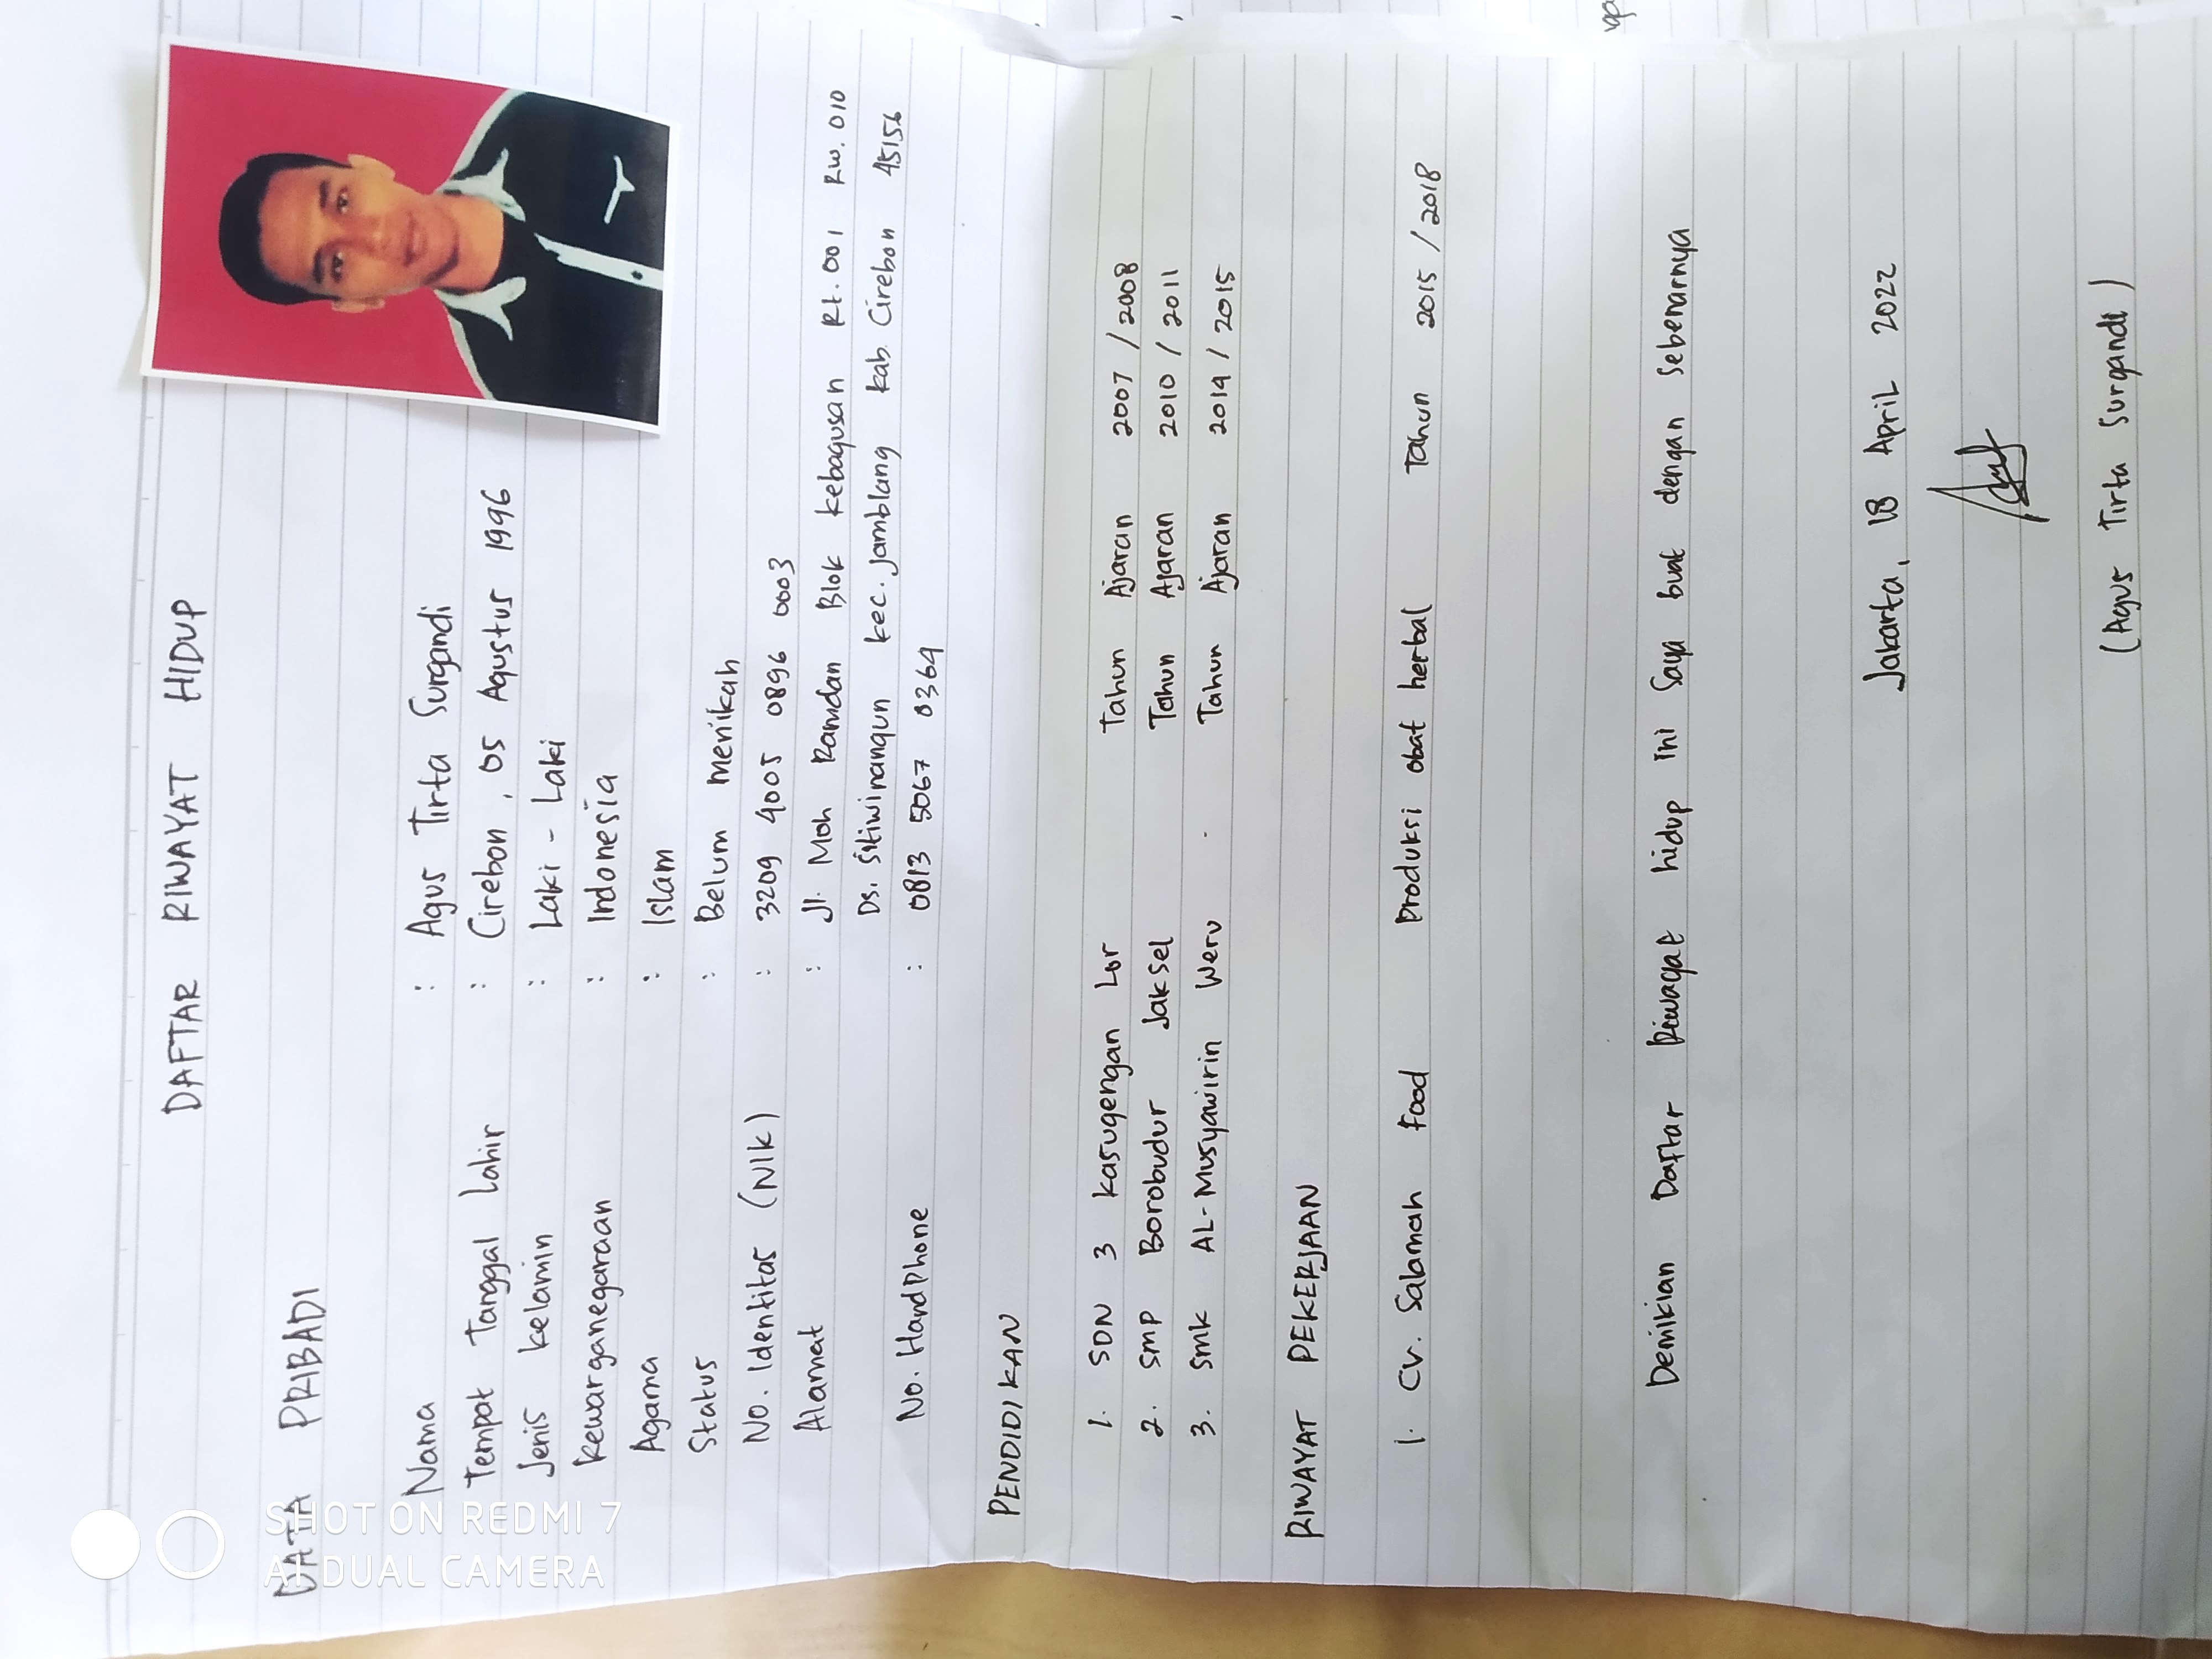 DAFTAR RIWAYAT HIDUP
DATA PRIBADI
Nama : Agus Tirta Surgandi
Tempat Tanggal Lahir : Cirebon, 05 Agustus 1996
Jenis kelamin : Laki - Laki
Kewarganegaraan : Indonesia
Agama : Islam
Status : Belum menikah
No. Identitas (NIK) : 3209 4005 0896 0003
Alamat : Jl. Moh Ramdan Blok kebagusan Rt. 001 Rw. 010
Ds. Sitiwinangun kec. Jamblang kab. Cirebon 45156
No. HandPhone : 0813 5067 0364
PENDIDIKAN
1. SDN 3 Kasugengan Lor Tahun Ajaran 2007 / 2008
2. SMP Borobudur Jaksel Tahun Ajaran 2010 / 2011
3. SMK AL-Musyawirin Weru Tahun Ajaran 2014 / 2015
RIWAYAT PEKERJAAN
1. CV. Salamah Food Produksi obat herbal Tahun 2015 / 2018
Demikian Daftar Riwayat hidup ini Saya buat dengan sebenarnya
Jakarta, 18 April 2022
(Agus Tirta Surgandi)
SHOT ON REDMI 7
AI DUAL CAMERA